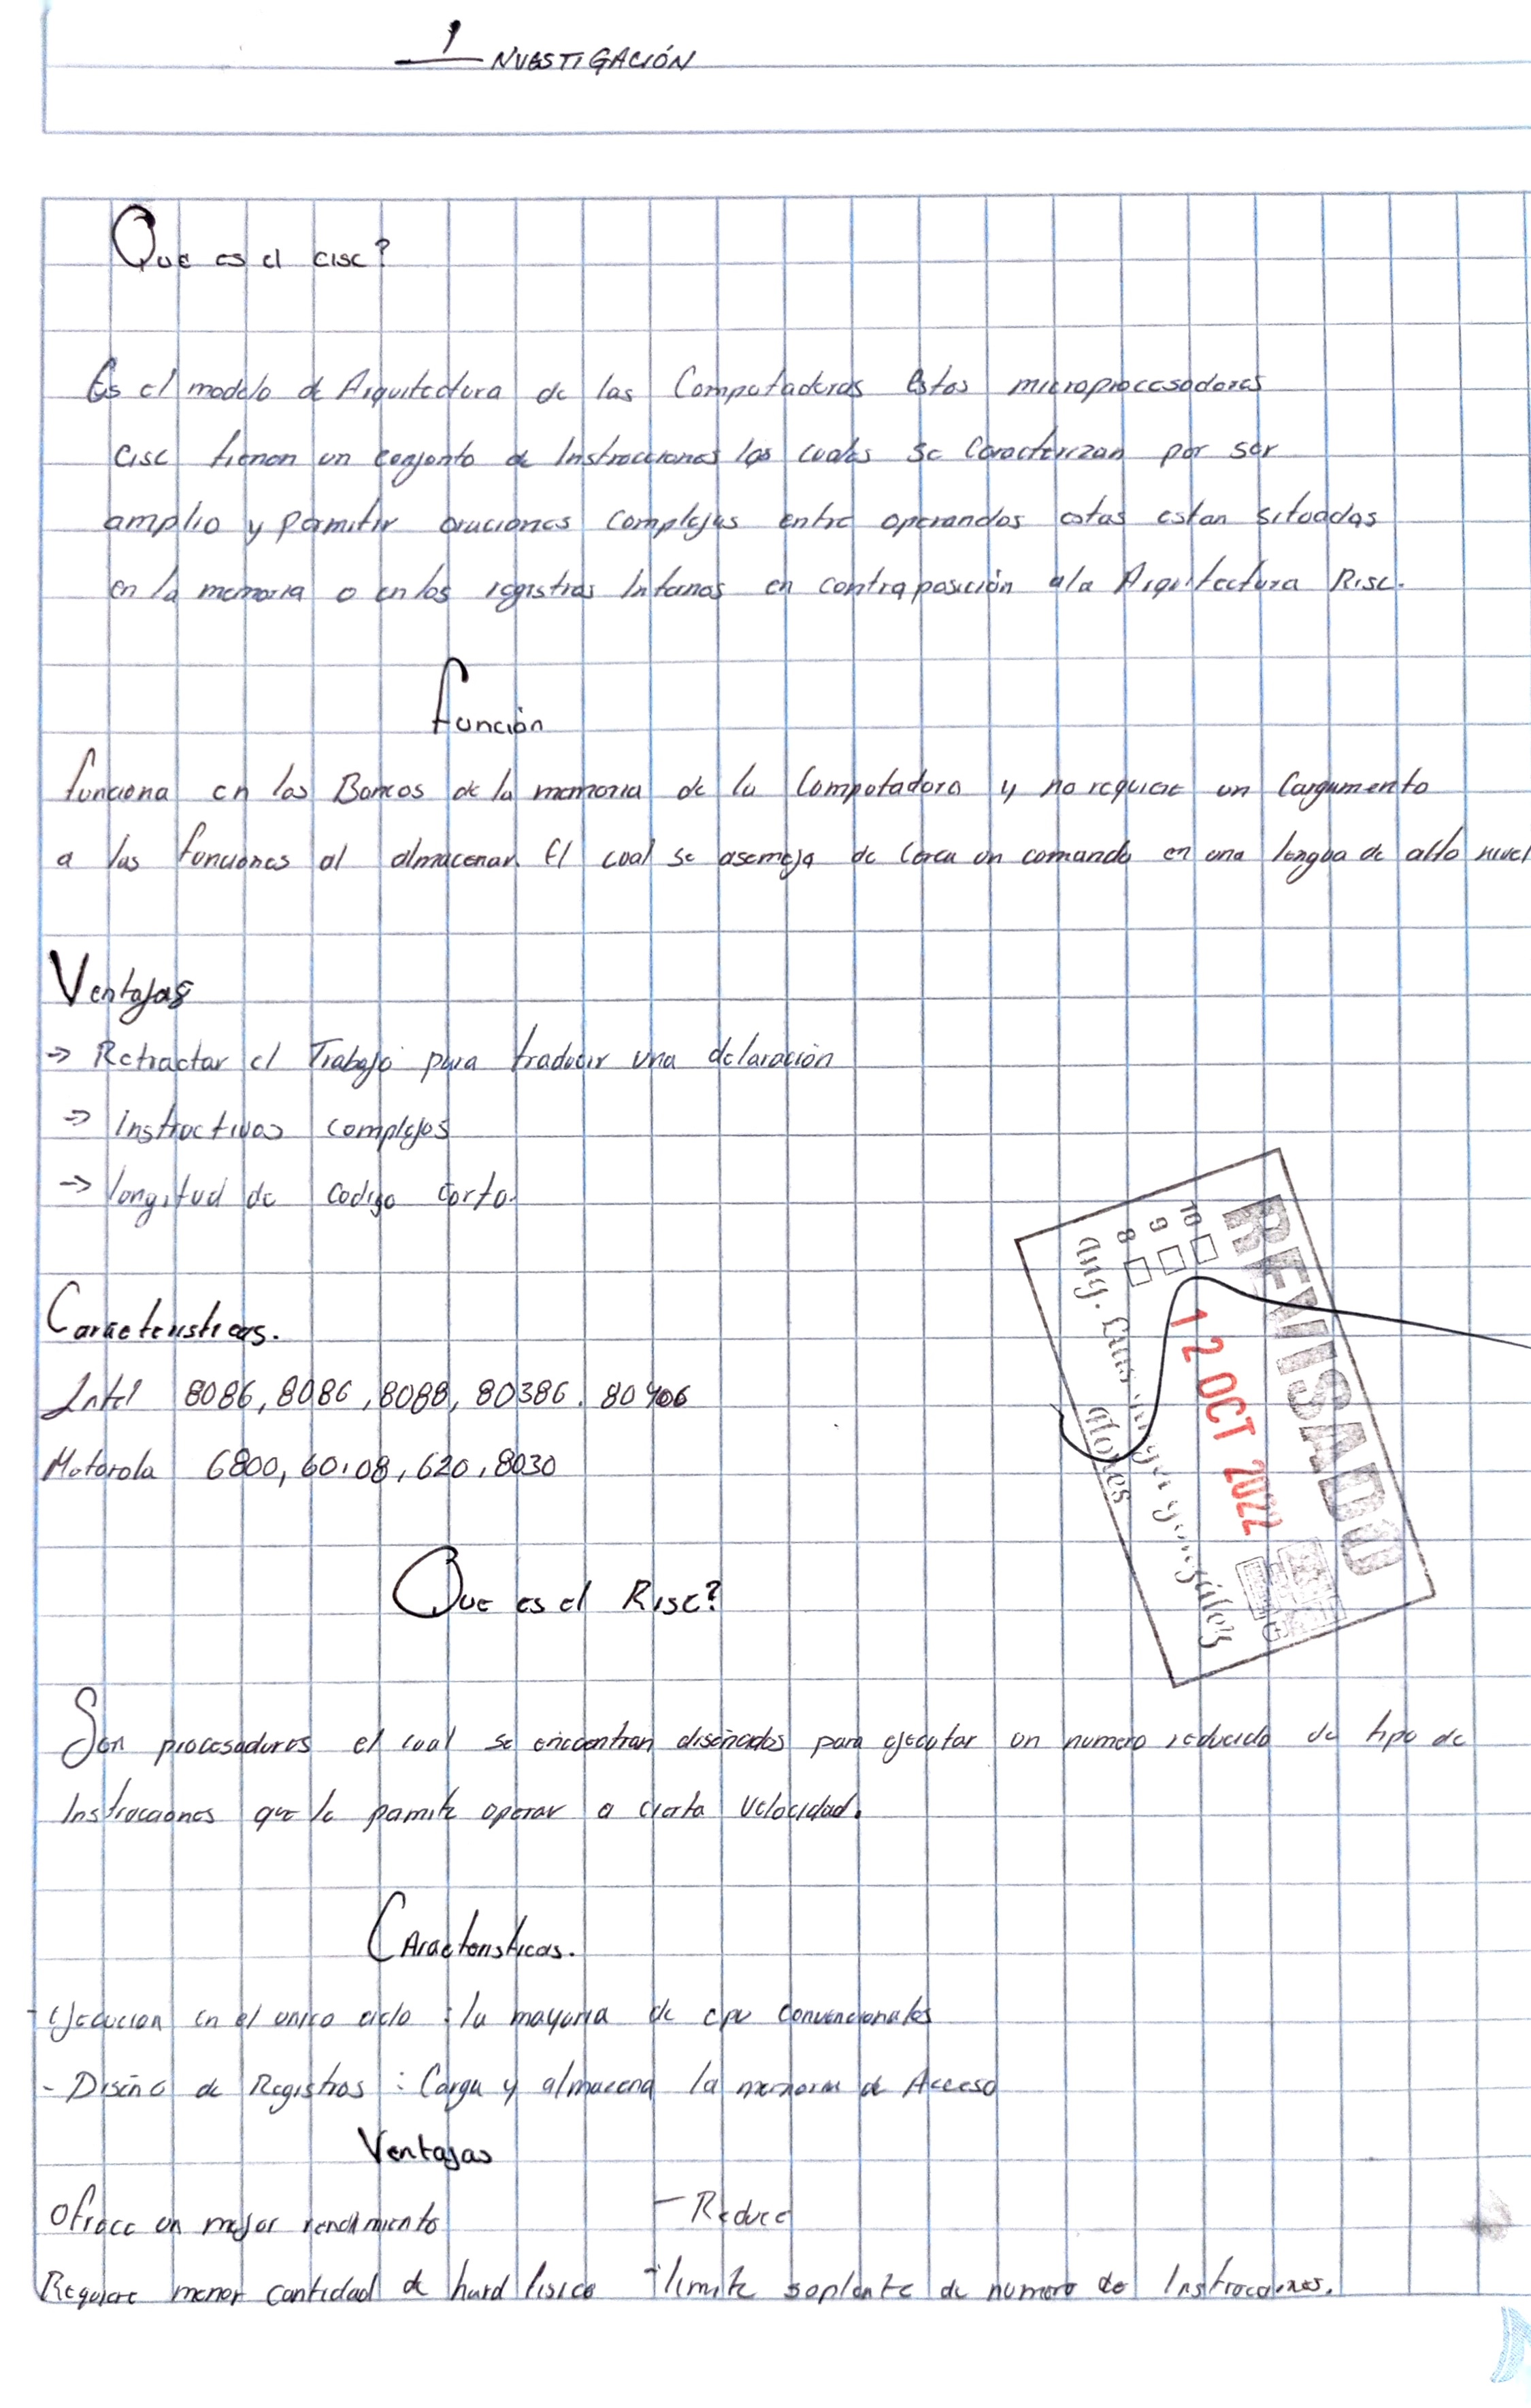 INVESTIGACIÓN
Que es el cisc?
Es el modelo de Arquitectura de las Computadoras Estos microprocesadores
cisc tienen un conjunto de Instrucciones los cuales se Caracterizan por ser
amplio y permitir oraciones complejas entre operandos estas estan situadas
en la memoria o en los registros Internos en contraposición a la Arquitectura Risc.
función
funciona en los Bancos de la memoria de la Computadora y no requiere un Cargumento
a las funciones al almacenar. El cual se asemeja de cerca un comando en una lengua de alto nivel
Ventajas
→ Retractar el Trabajo para traducir una delaración
→ Instructivos complejos
→ longitud de codigo corto.
REVISADO
10
9
8
12 OCT 2022
Ing. Luis González
Flores
Caracteristicas.
Intel 8086, 8086, 8088, 80386, 80406
Motorola 6800, 60,08, 620, 8030
Que es el Risc?
Son procesadores el cual se encuentran diseñados para ejecutar un numero reducido de tipo de
Instrucciones que le pamite operar a cierta velocidad.
CAracteristicas.
- Ejecucion en el unico ciclo : la mayoria de cpu convencionales
- Diseño de Registros : Carga y almacena la memoria de Acceso
Ventajas
Ofrece un mejor rendimiento - Reduce
Requiere menor cantidad de hard fisico - limite de numero de Instrucciones.